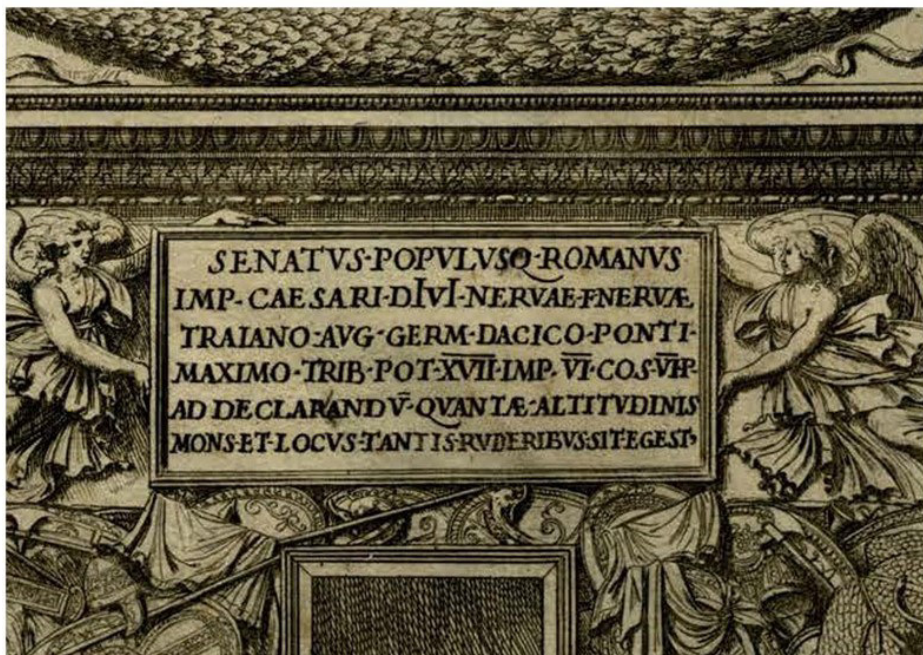 SENATVS·POPVLVSQ·ROMANVS
IMP·CAESARI·DIVI·NERVAE·F·NERVÆ
TRAIANO·AVG·GERM·DACICO·PONTI·
MAXIMO·TRIB·POT·X̅V̅I̅I̅·IMP·V̅I̅·COS·V̅I̅·P·
AD DECLARANDV̄·QVANTÆ·ALTITVDINIS
MONS·ET·LOCVS·TANTIS·RVDERIBVS·SIT·EGEST,